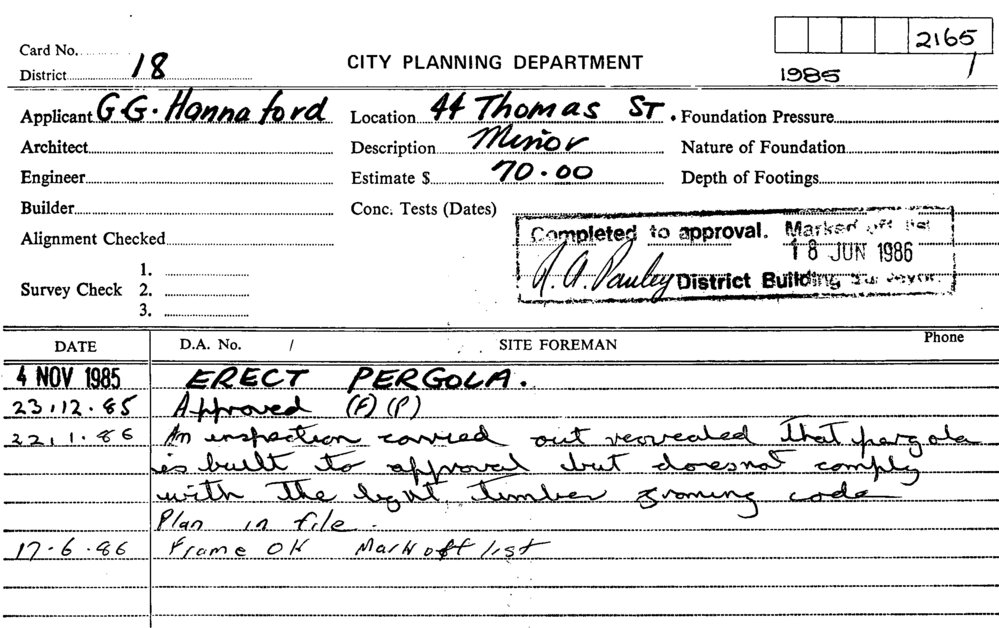 2165
Card No.
District 18
CITY PLANNING DEPARTMENT
1985 /
Applicant G.G. Hannaford
Location 44 Thomas ST.
Foundation Pressure
Architect
Description Minor
Nature of Foundation
Engineer
Estimate $ 70.00
Depth of Footings
Builder
Conc. Tests (Dates)
Alignment Checked
Completed to approval. Marked off list
18 JUN 1986
District Building Surveyor
Survey Check
1.
2.
3.
DATE D.A. No. / SITE FOREMAN Phone
4 NOV 1985 ERECT PERGOLA.
23.12.85 Approved (F) (P)
22.1.86 An inspection carried out revealed that pergola
is built to approval but does not comply
with the light timber framing code
Plan in file.
17.6.86 Frame OK Mark off list